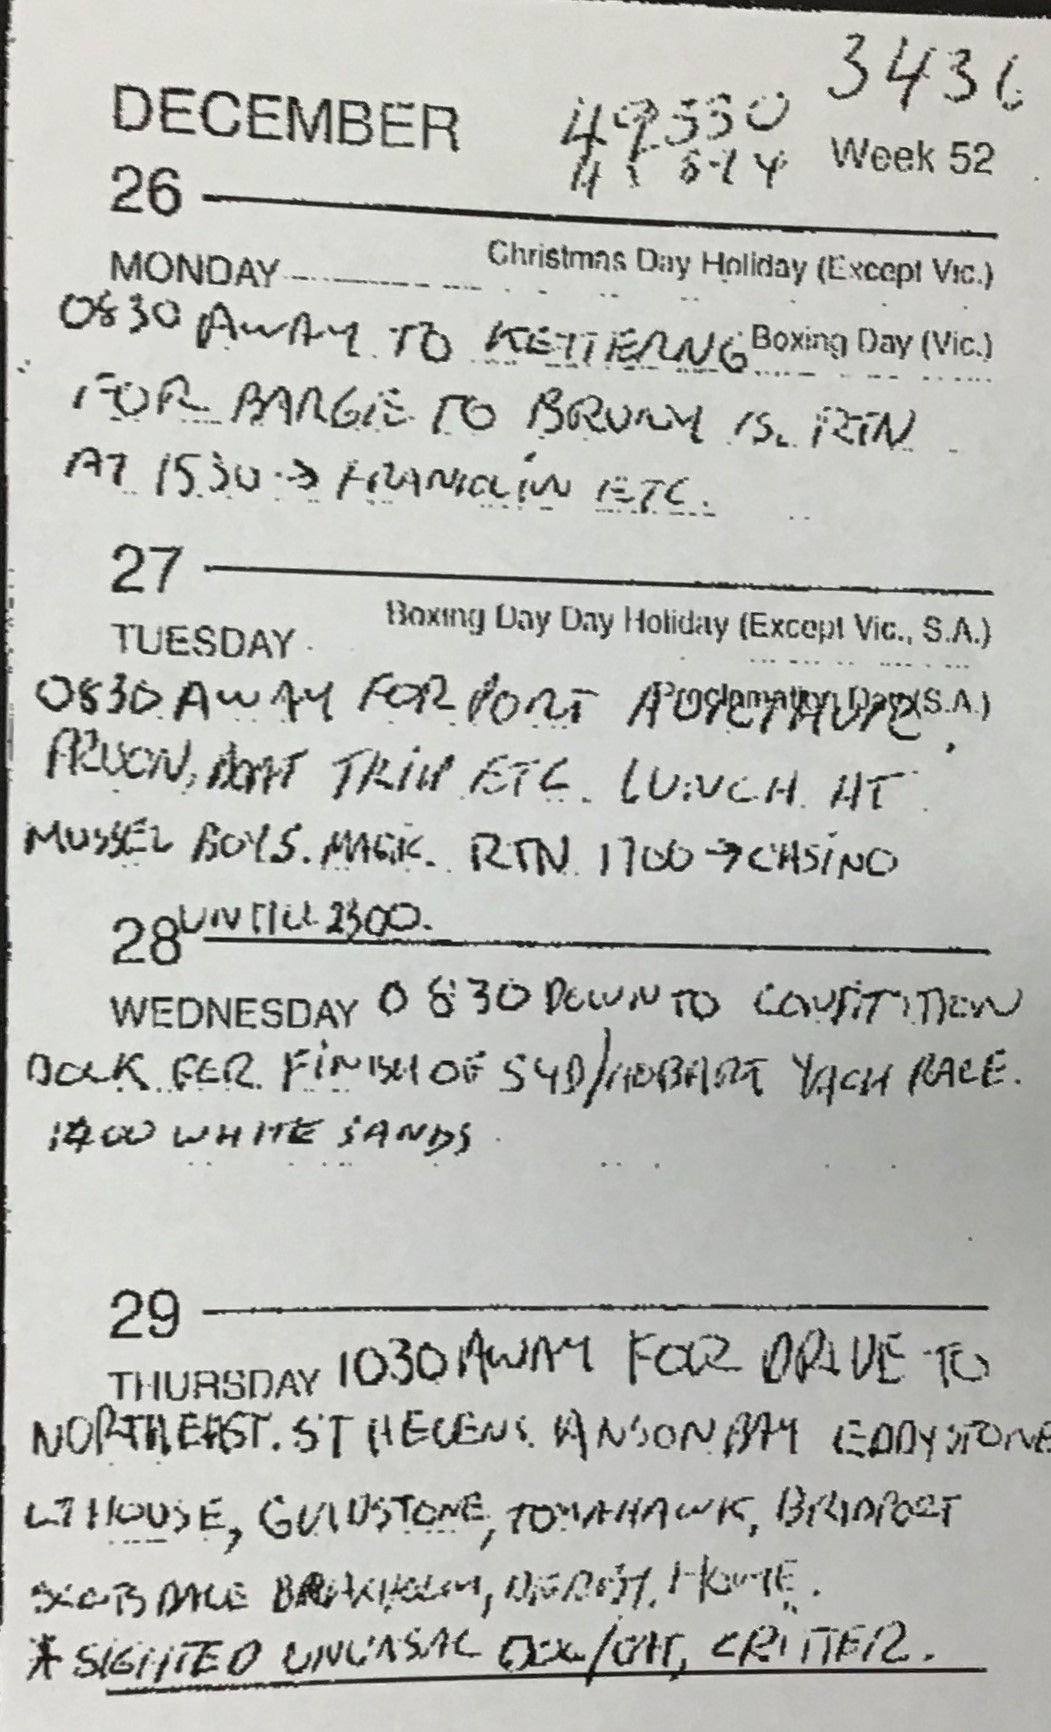 3436
DECEMBER 49550
Week 52
26
MONDAY Christmas Day Holiday (Except Vic.)
0830 AWAY TO KETTERNG Boxing Day (Vic.)
FOR BARGE TO BRUNY IS. RTN
AT 1530 → FRANKLIN ETC.
27
Boxing Day Day Holiday (Except Vic., S.A.)
TUESDAY
Proclamation Day (S.A.)
0830 AWAY FOR PORT
BOAT TRIP ETC. LUNCH AT
MUSSEL BOYS. RTN 1700 → CASINO
UNTILL 2300.
28
WEDNESDAY 0830 DOWN TO CONSTITTION
DOCK FER FINISH OF SYD/HOBART YACH RACE.
1400 WHITE SANDS
29
THURSDAY 1030 AWAY FOR DRIVE TO
NORTH EAST. ST HELENS. ANSON BAY EDDYSTONE
LT HOUSE, GLADSTONE, TOMAHAWK, BRIDPORT
HOME.
* SIGHTED DOG/CAT, CRITTER.